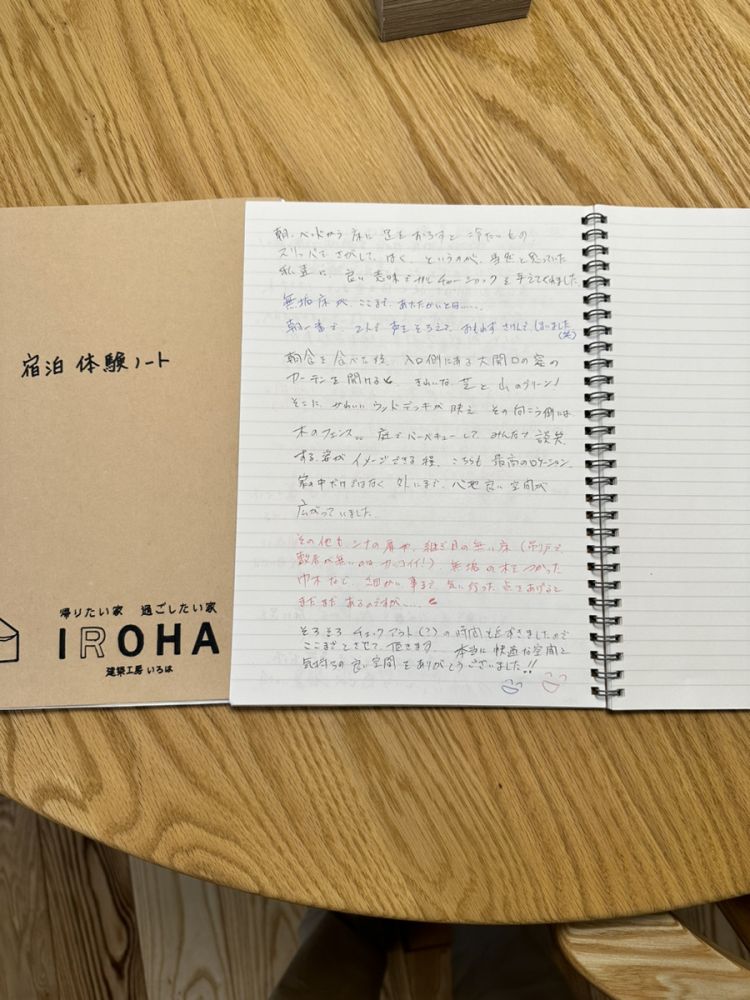 宿泊 体験ノート
帰りたい家 過ごしたい家
IROHA
建築工房 いろは
朝、ベッドから 床に 足をおろすと 冷たいもの
スリッパを さがして、はく、というのが、当然と思っていた
私達に、良い意味でカルチャーショックを与えてくれました
無垢床が ここまで、あたたかいとは.....
朝一番で、2人で 声をそろえて、おもわず さけんで しまいました
(笑)
朝食を食べた後、入口側にある大開口の窓の
カーテンを開けると、きれいな 芝と 山のグリーン!
そこに、きれいな ウッドデッキが 映え その向こう側には
木のフェンス。。庭でバーベキューして みんなで 談笑
する姿が イメージできる程、こちらも 最高のロケーション
家の中だけではなく 外にまで、心地良い空間が
広がっていました。
その他も シナの扉や、継ぎ目の無い床 (吊り戸で
敷居が無いのは カッコイイ!) 無垢の木をつかった
巾木など、細かい事まで、気に行った 点をあげると
まだまだ あるのですが.....
そろそろ チェックアウト(?)の時間も近ずきましたので
ここまでとさせて 頂きます。 本当に快適な空間と
気持ちの良い空間をありがとうございました!!